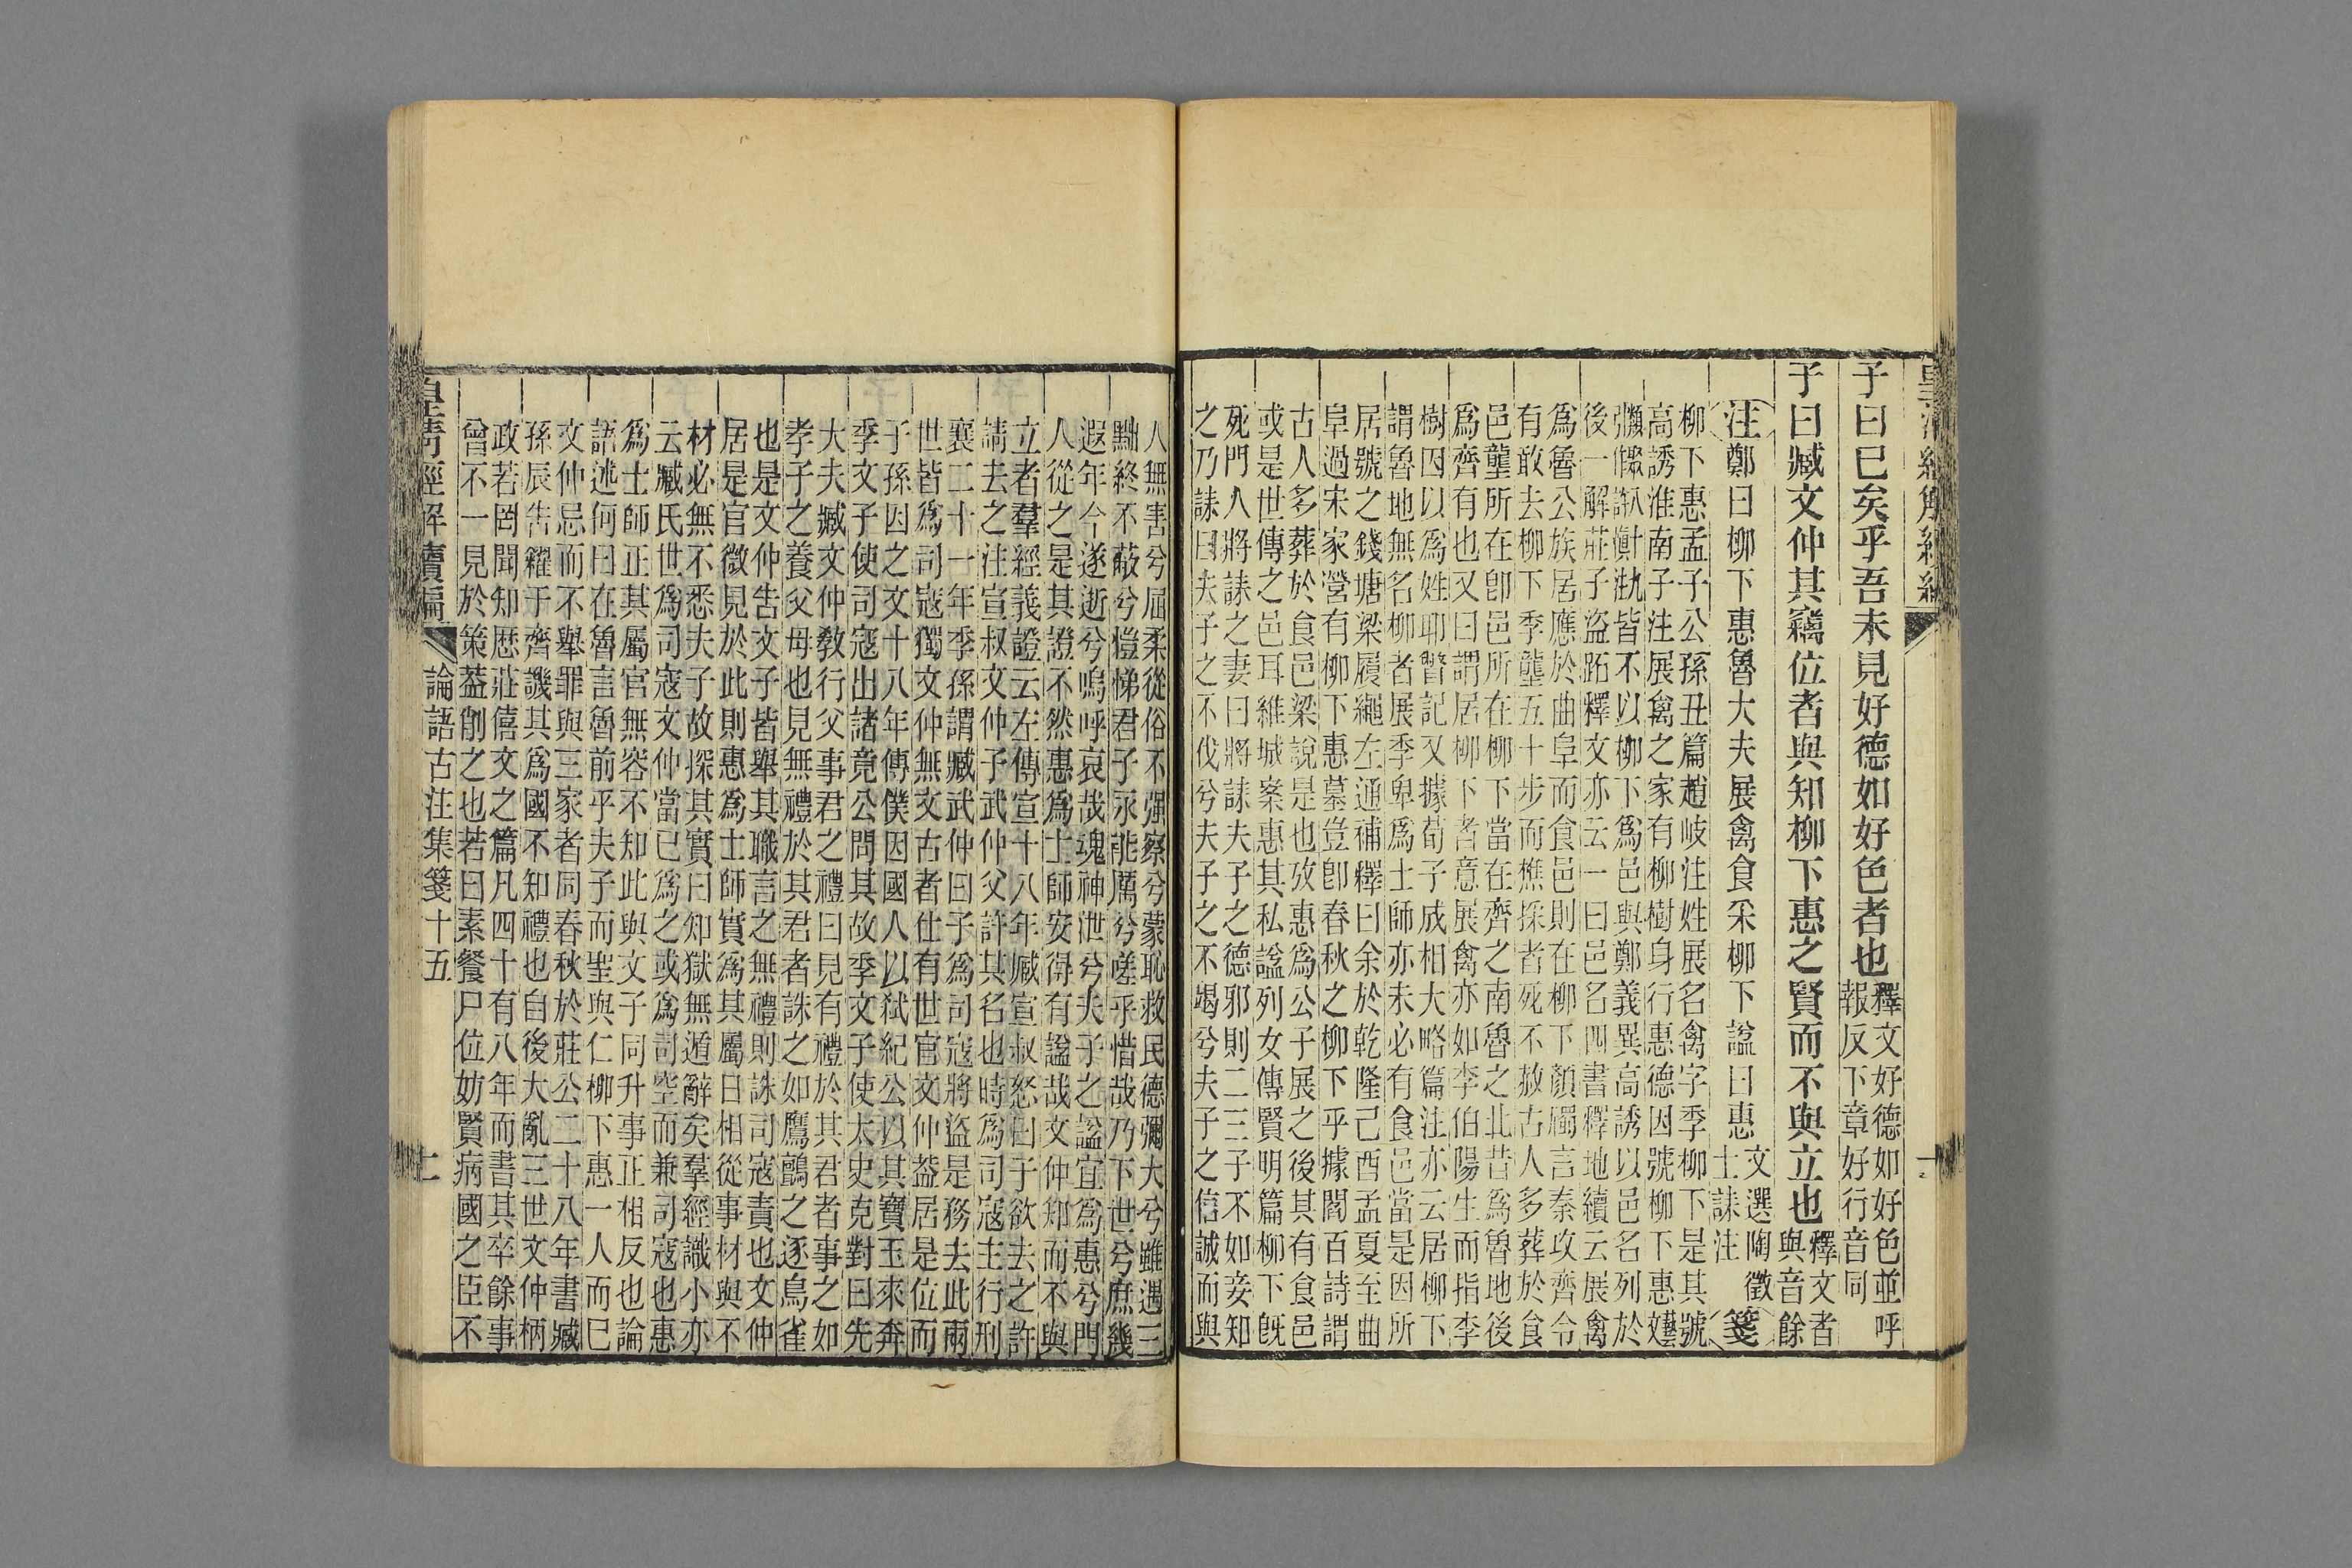 子曰已矣乎吾未見好德如好色者也
釋文好德如好色並呼
報反下章好行音同
子曰臧文仲其竊位者與知柳下惠之賢而不與立也
釋文者
與音餘
注鄭曰柳下惠魯大夫展禽食采柳下諡曰惠
文選陶徵
士誄注
箋
柳下惠孟子公孫丑篇趙岐注姓展名禽字季柳下是其號
高誘淮南子注展禽之家有柳樹身行惠德因號柳下惠
皆不以柳下爲邑與鄭義異高誘以邑名列於
後一解莊子盜跖釋文亦云一曰邑名四書釋地續云展禽
爲魯公族居應於曲阜而食邑則在柳下顏斶言秦攻齊令
有敢去柳下季壟五十步而樵採者死不赦古人多葬於食
邑壟所在卽邑所在柳下當在齊之南魯之北昔爲魯地後
爲齊有也又曰謂居柳下者意展禽亦如李伯陽生而指李
樹因以爲姓耶瞽記又據荀子成相大略篇注亦云居柳下
謂魯地無名柳者展季卑爲士師亦未必有食邑當是因所
居號之錢塘梁履繩左通補釋曰余於乾隆己酉孟夏至曲
阜過宋家營有柳下惠墓豈卽春秋之柳下乎據閻百詩謂
古人多葬於食邑梁說是也攷惠爲公子展之後其有食邑
或是世傳之邑耳維城案惠其私諡列女傳賢明篇柳下旣
死門人將誄之妻曰將誄夫子之德邪則二三子不如妾知
之乃誄曰夫子之不伐兮夫子之不竭兮夫子之信誠而與
人無害兮屈柔從俗不强察兮蒙恥救民德彌大兮雖遇三
黜終不蔽兮愷悌君子永能厲兮嗟乎惜哉乃下世兮庶幾
遐年今遂逝兮嗚呼哀哉魂神泄兮夫子之諡宜爲惠兮門
人從之是其證不然惠爲士師安得有諡哉文仲知而不與
立者羣經義證云左傳宣十八年臧宣叔怒曰子欲去之許
請去之注宣叔文仲子武仲父許其名也時爲司寇主行刑
襄二十一年季孫謂臧武仲曰子爲司寇將盜是務去此兩
世皆爲司寇獨文仲無文古者仕有世官文仲蓋居是位而
子孫因之文十八年傳僕因國人以弒紀公以其寶玉來奔
季文子使司寇出諸竟公問其故季文子使太史克對曰先
大夫臧文仲敎行父事君之禮曰見有禮於其君者事之如
孝子之養父母也見無禮於其君者誅之如鷹鸇之逐鳥雀
也是文仲告文子皆舉其職言之無禮則誅司寇責也文仲
居是官微見於此則惠爲士師實爲其屬曰相從事材與不
材必無不悉夫子故探其實曰知獄無遁辭矣羣經識小亦
云臧氏世爲司寇文仲當已爲之或爲司空而兼司寇也惠
爲士師正其屬官無容不知此與文子同升事正相反也論
語述何曰在魯言魯前乎夫子而聖與仁柳下惠一人而已
文仲忌而不舉罪與三家者同春秋於莊公二十八年書臧
孫辰告糴于齊譏其爲國不知禮也自後大亂三世文仲柄
政若罔聞知厯莊僖文之篇凡四十有八年而書其卒餘事
曾不一見於策蓋削之也若曰素餐尸位妨賢病國之臣不
皇淸經解續編
論語古注集箋十五